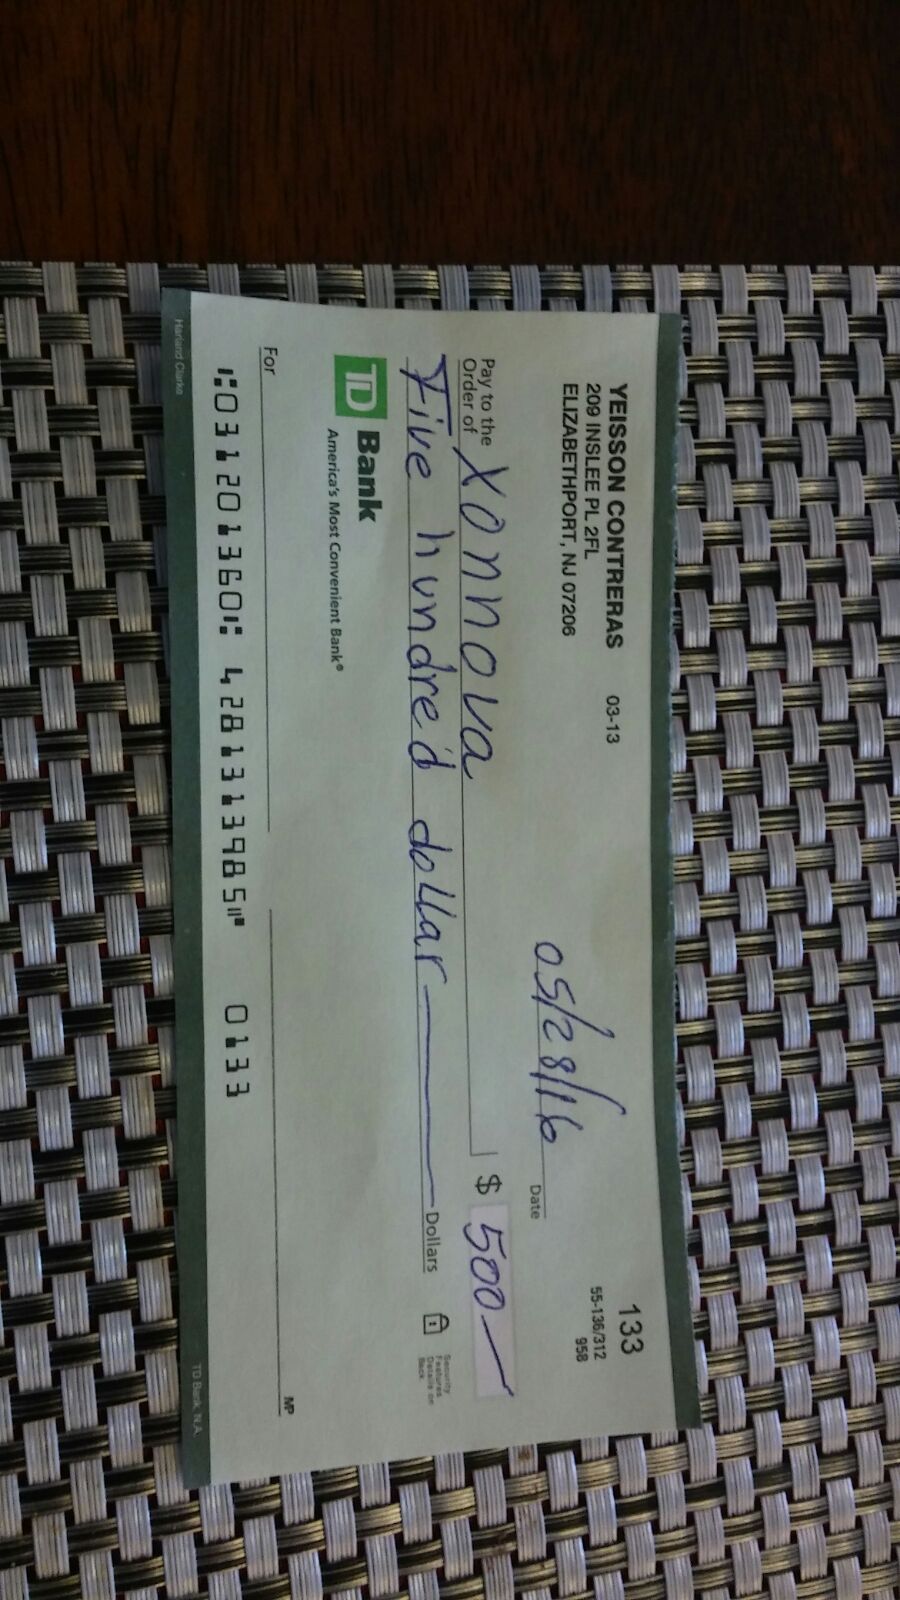 YEISSON CONTRERAS 03-13
209 INSLEE PL 2FL
ELIZABETHPORT, NJ 07206
133
55-136/312
958
05/28/16 Date
Pay to the
Order of Xonnova $ 500
Five hundred dollar Dollars
Security
Features
Details on
Back
TD Bank
America's Most Convenient Bank®
For
MP
⑆031201360⑆ 4281313985⑈ 0133
Harland Clarke
TD Bank, N.A.